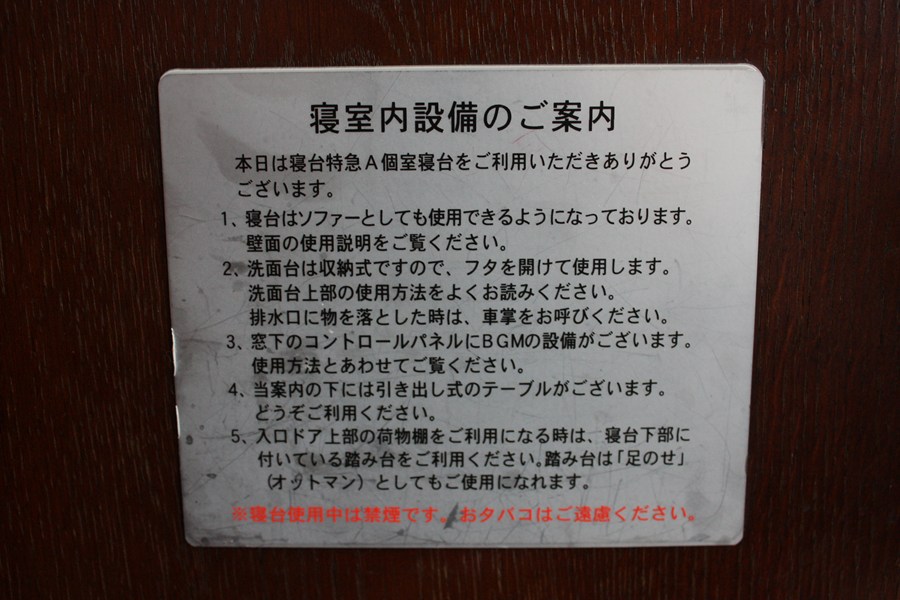 寝室内設備のご案内
本日は寝台特急A個室寝台をご利用いただきありがとう
ございます。
1、寝台はソファーとしても使用できるようになっております。
壁面の使用説明をご覧ください。
2、洗面台は収納式ですので、フタを開けて使用します。
洗面台上部の使用方法をよくお読みください。
排水口に物を落とした時は、車掌をお呼びください。
3、窓下のコントロールパネルにBGMの設備がございます。
使用方法とあわせてご覧ください。
4、当案内の下には引き出し式のテーブルがございます。
どうぞご利用ください。
5、入口ドア上部の荷物棚をご利用になる時は、寝台下部に
付いている踏み台をご利用ください。踏み台は「足のせ」
(オットマン)としてもご使用になれます。
※寝台使用中は禁煙です。おタバコはご遠慮ください。